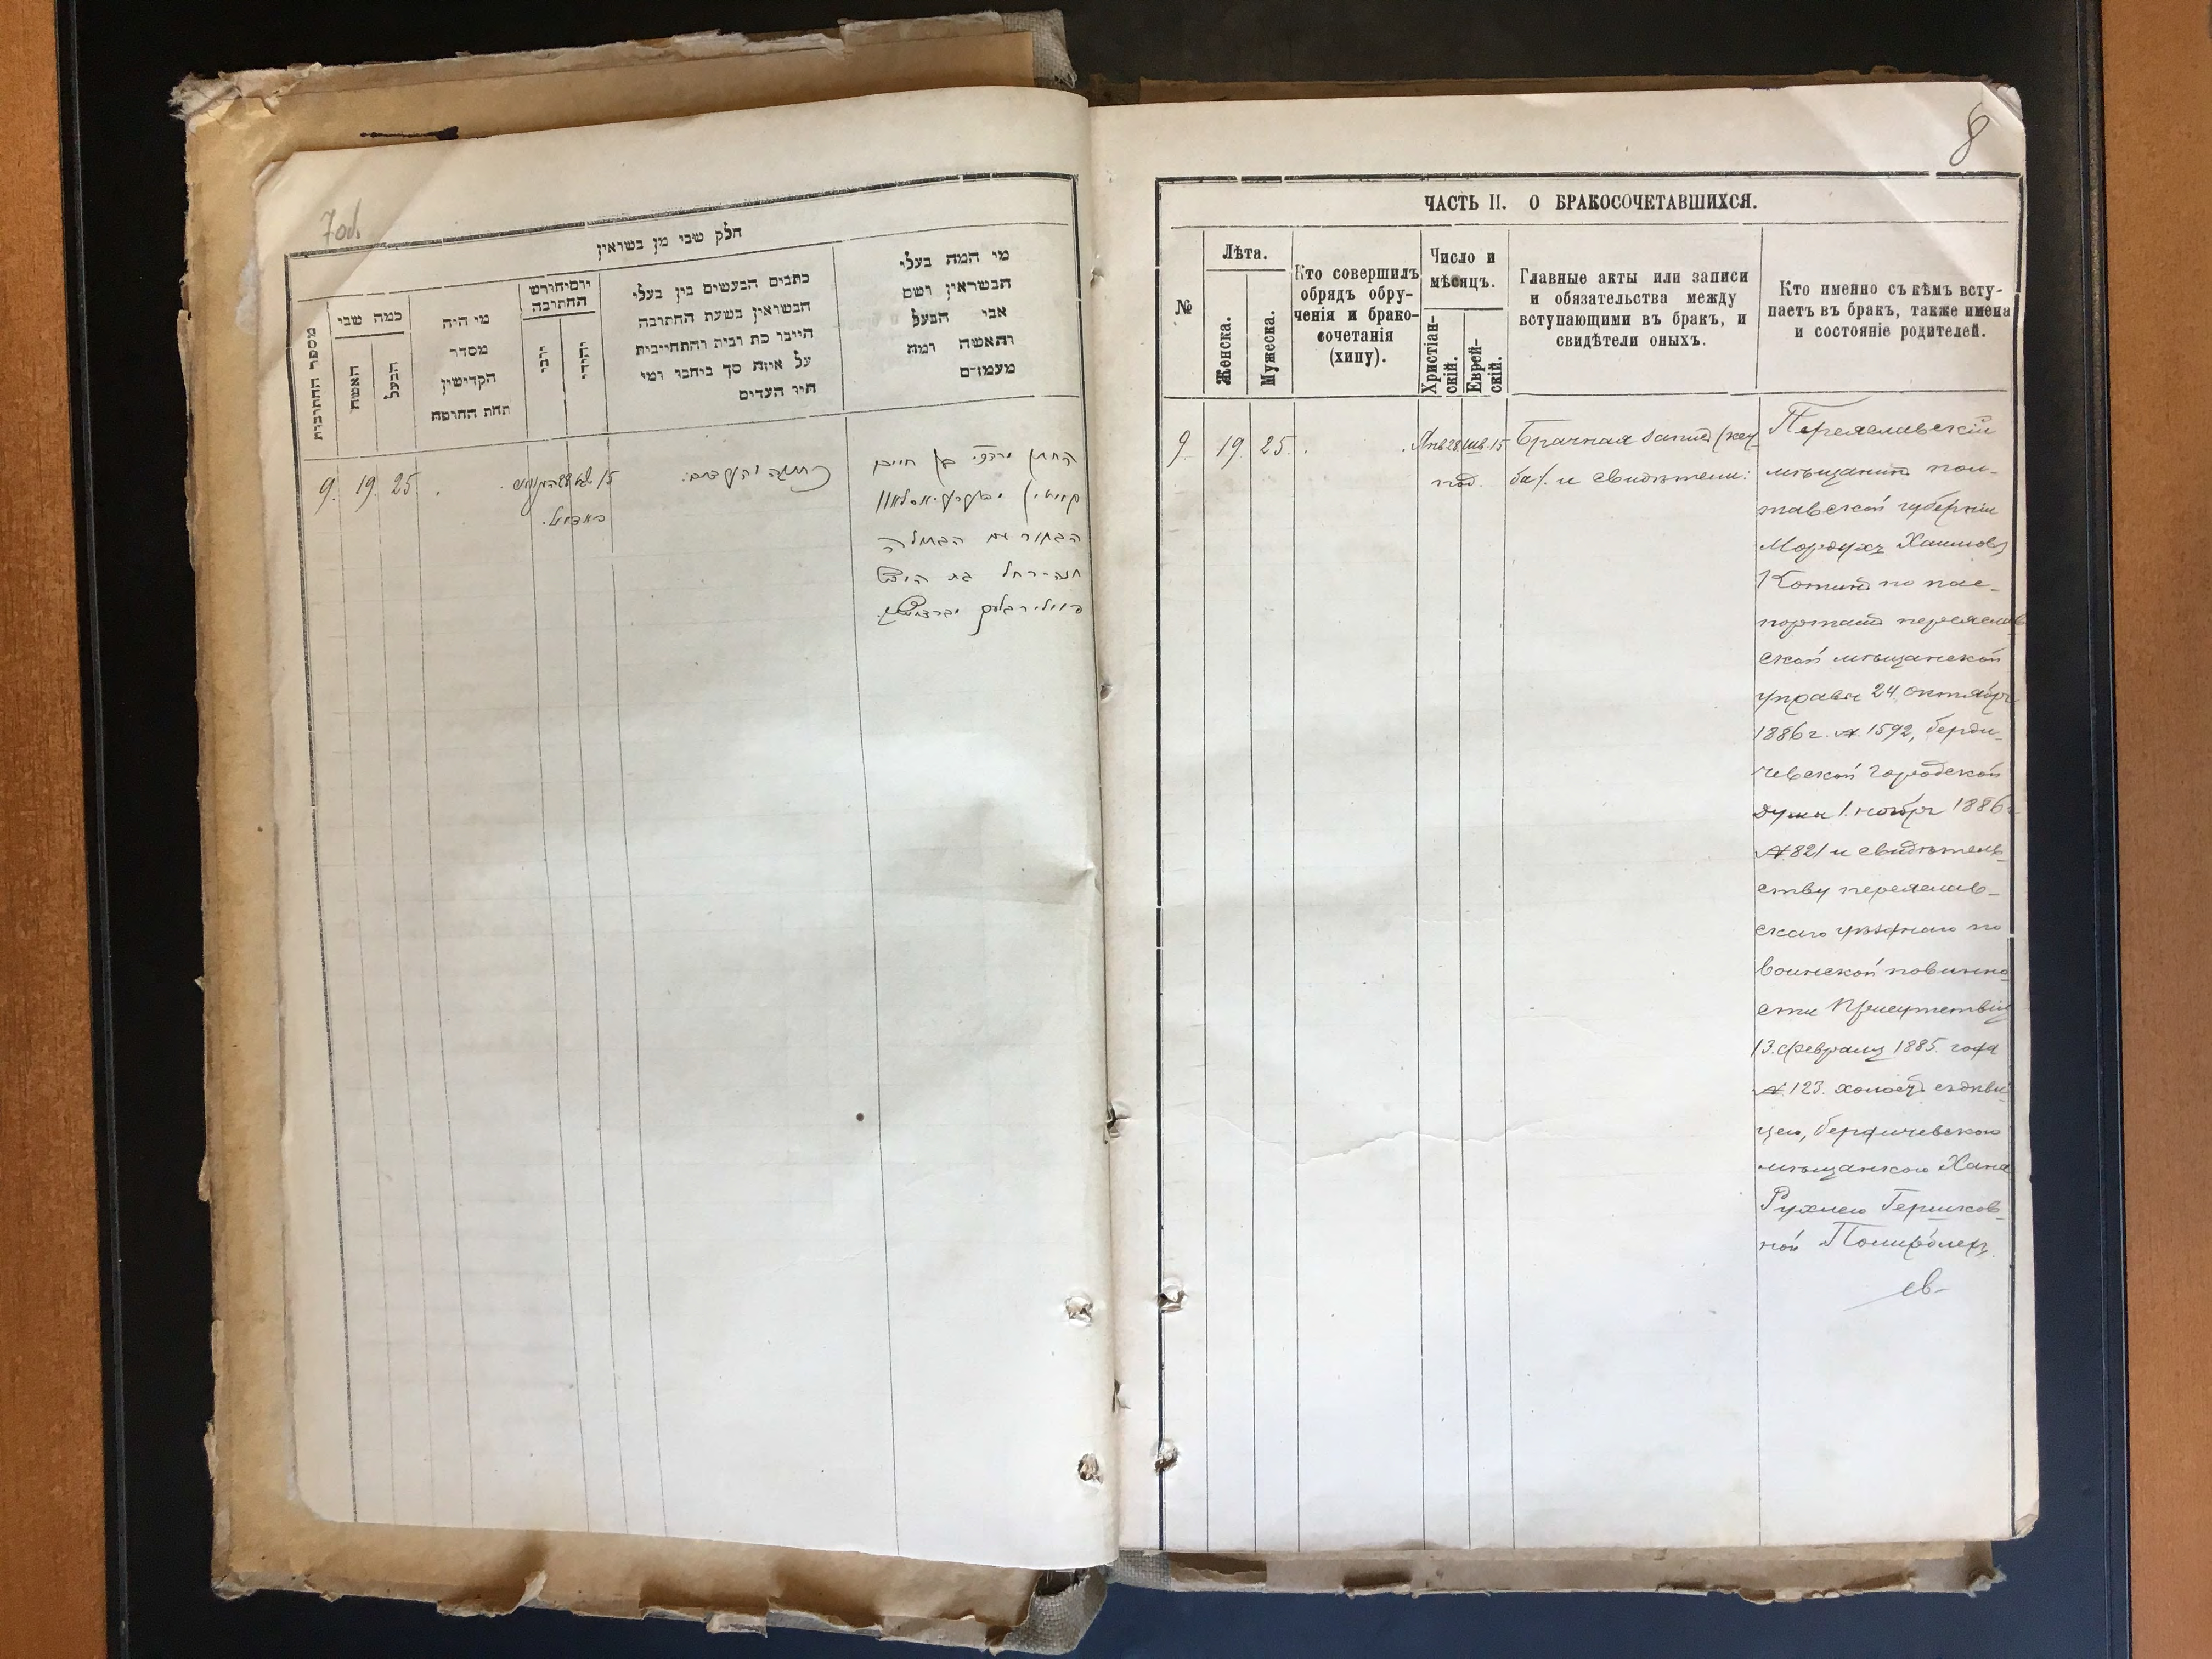 7 об.
חלק שבי מן בשראין
מספר החתובות
כמה שבי
האשה
הבעל
מי היה
מסדר
הקדישין
תחת החופה
יום וחורש
החתובה
ירבי
יהודי
כתבים הבעשים בין בעלי
הבשראין בשעת החתובה
היינו כת רביה והתחייבית
על איזה סך ביחבו ומי
היו העדים
מי המה בעלי
הבשראין ושם
אבי הבעל
והאשה ומה
מעמדם
9.
19.
25
28
15
החתן מרדכי בן חיים
הבחור עם הבתולה
חנה-רחל בת הירש
8
ЧАСТЬ II. О БРАКОСОЧЕТАВШИХСЯ.
№
Лѣта.
Женска.
Мужеска.
Кто совершилъ
обрядъ обру-
ченія и брако-
сочетанія
(хипу).
Число и
мѣсяцъ.
Христіан-
скій.
Еврей-
скій.
Главные акты или записи
и обязательства между
вступающими въ бракъ, и
свидѣтели оныхъ.
Кто именно съ кѣмъ всту-
паетъ въ бракъ, также имена
и состояніе родителей.
9.
19.
25.
Янв. 28
шв. 15
Брачная запись (кет-
ба). и свидѣтели:
Переяславскій
мѣщанинъ пол-
тавской губерніи
Мордухъ Хаимовъ
Котинъ по пас-
портамъ переяслав
ской мѣщанской
управы 24 октября
1886 г. № 1592, берди-
чевской городской
думы 1. ноября 1886 г
№ 821 и свидѣтель-
ству переяслав-
скаго уѣзднаго по
воинской повинно
сти Присутствія
13. февраля 1885. года
№ 123. холостъ съ дѣви
цею, бердичевскою
мѣщанкою Хана
Рухлею Гершков-
ной